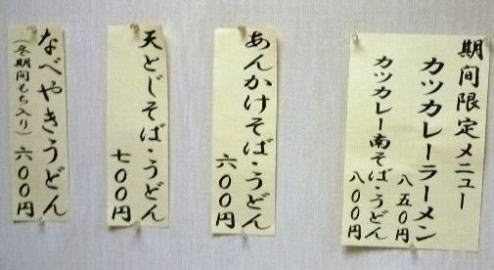 期間限定メニュー
カツカレーラーメン
八五〇円
カツカレー南そば・うどん
八〇〇円
あんかけそば・うどん
六〇〇円
天とじそば・うどん
七〇〇円
なべやきうどん
(冬期間もち入り)六〇〇円